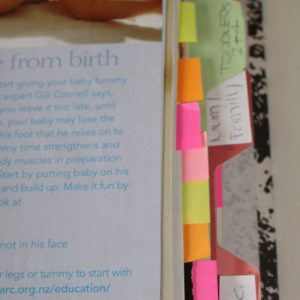 e from birth
tart giving your baby tummy
expert Gill Connell says,
you leave it too late, until
, your baby may lose the
his foot that he relies on to
my time strengthens and
dy muscles in preparation
Start by putting baby on his
and build up. Make it fun by:
ok at
not in his face
r legs or tummy to start with
arc.org.nz/education/
TODDLERS
mum/
family